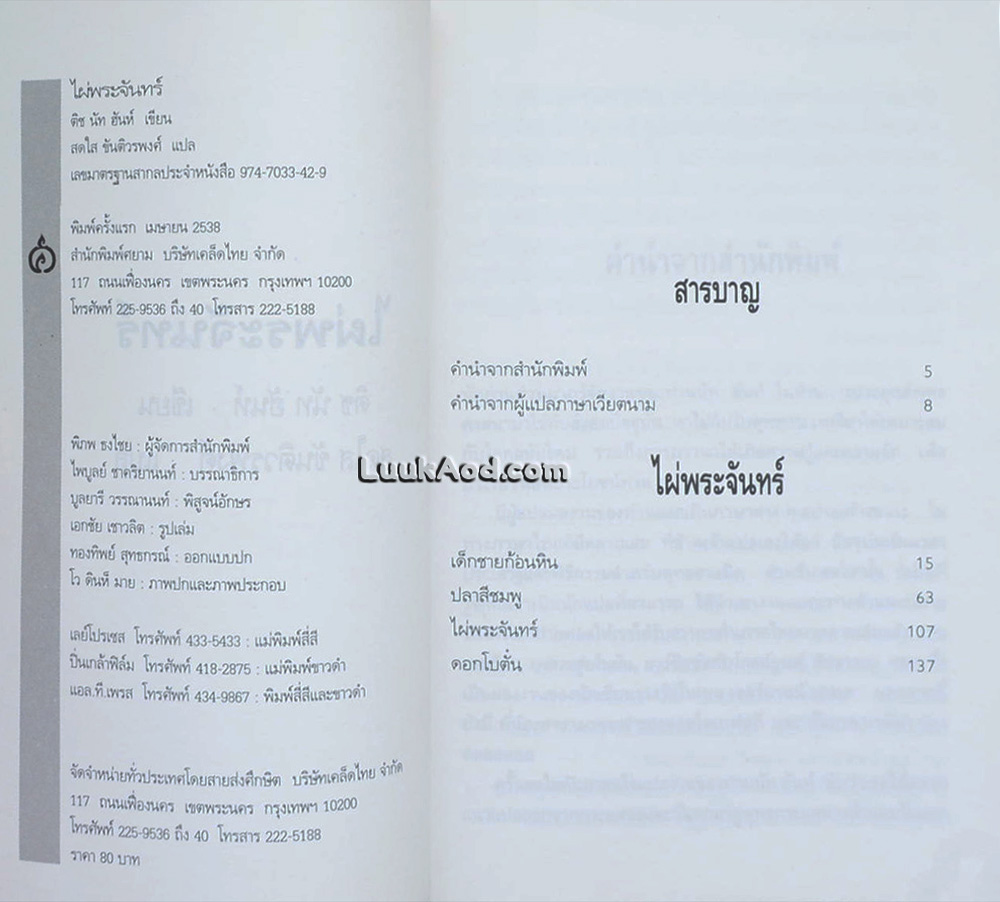 ไผ่พระจันทร์
ติช นัท ฮันห์ เขียน
สดใส ขันติวรพงศ์ แปล
เลขมาตรฐานสากลประจำหนังสือ 974-7033-42-9
พิมพ์ครั้งแรก เมษายน 2538
สำนักพิมพ์ศยาม บริษัทเคล็ดไทย จำกัด
117 ถนนเฟื่องนคร เขตพระนคร กรุงเทพฯ 10200
โทรศัพท์ 225-9536 ถึง 40 โทรสาร 222-5188
พิภพ ธงไชย : ผู้จัดการสำนักพิมพ์
ไพบูลย์ ชาคริยานนท์ : บรรณาธิการ
บูลยารี วรรณานนท์ : พิสูจน์อักษร
เอกชัย เชาวลิต : รูปเล่ม
ทองทิพย์ สุทธกรณ์ : ออกแบบปก
โว ดินห์ มาย : ภาพปกและภาพประกอบ
เลย์โปรเซส โทรศัพท์ 433-5433 : แม่พิมพ์สี่สี
ปิ่นเกล้าฟิล์ม โทรศัพท์ 418-2875 : แม่พิมพ์ขาวดำ
แอล.ที.เพรส โทรศัพท์ 434-9867 : พิมพ์สี่สีและขาวดำ
จัดจำหน่ายทั่วประเทศโดยสายส่งศึกษิต บริษัทเคล็ดไทย จำกัด
117 ถนนเฟื่องนคร เขตพระนคร กรุงเทพฯ 10200
โทรศัพท์ 225-9536 ถึง 40 โทรสาร 222-5188
ราคา 80 บาท
LuukAod.com
สารบาญ
คำนำจากสำนักพิมพ์ 5
คำนำจากผู้แปลภาษาเวียตนาม 8
ไผ่พระจันทร์
เด็กชายก้อนหิน 15
ปลาสีชมพู 63
ไผ่พระจันทร์ 107
ดอกโบตั๋น 137